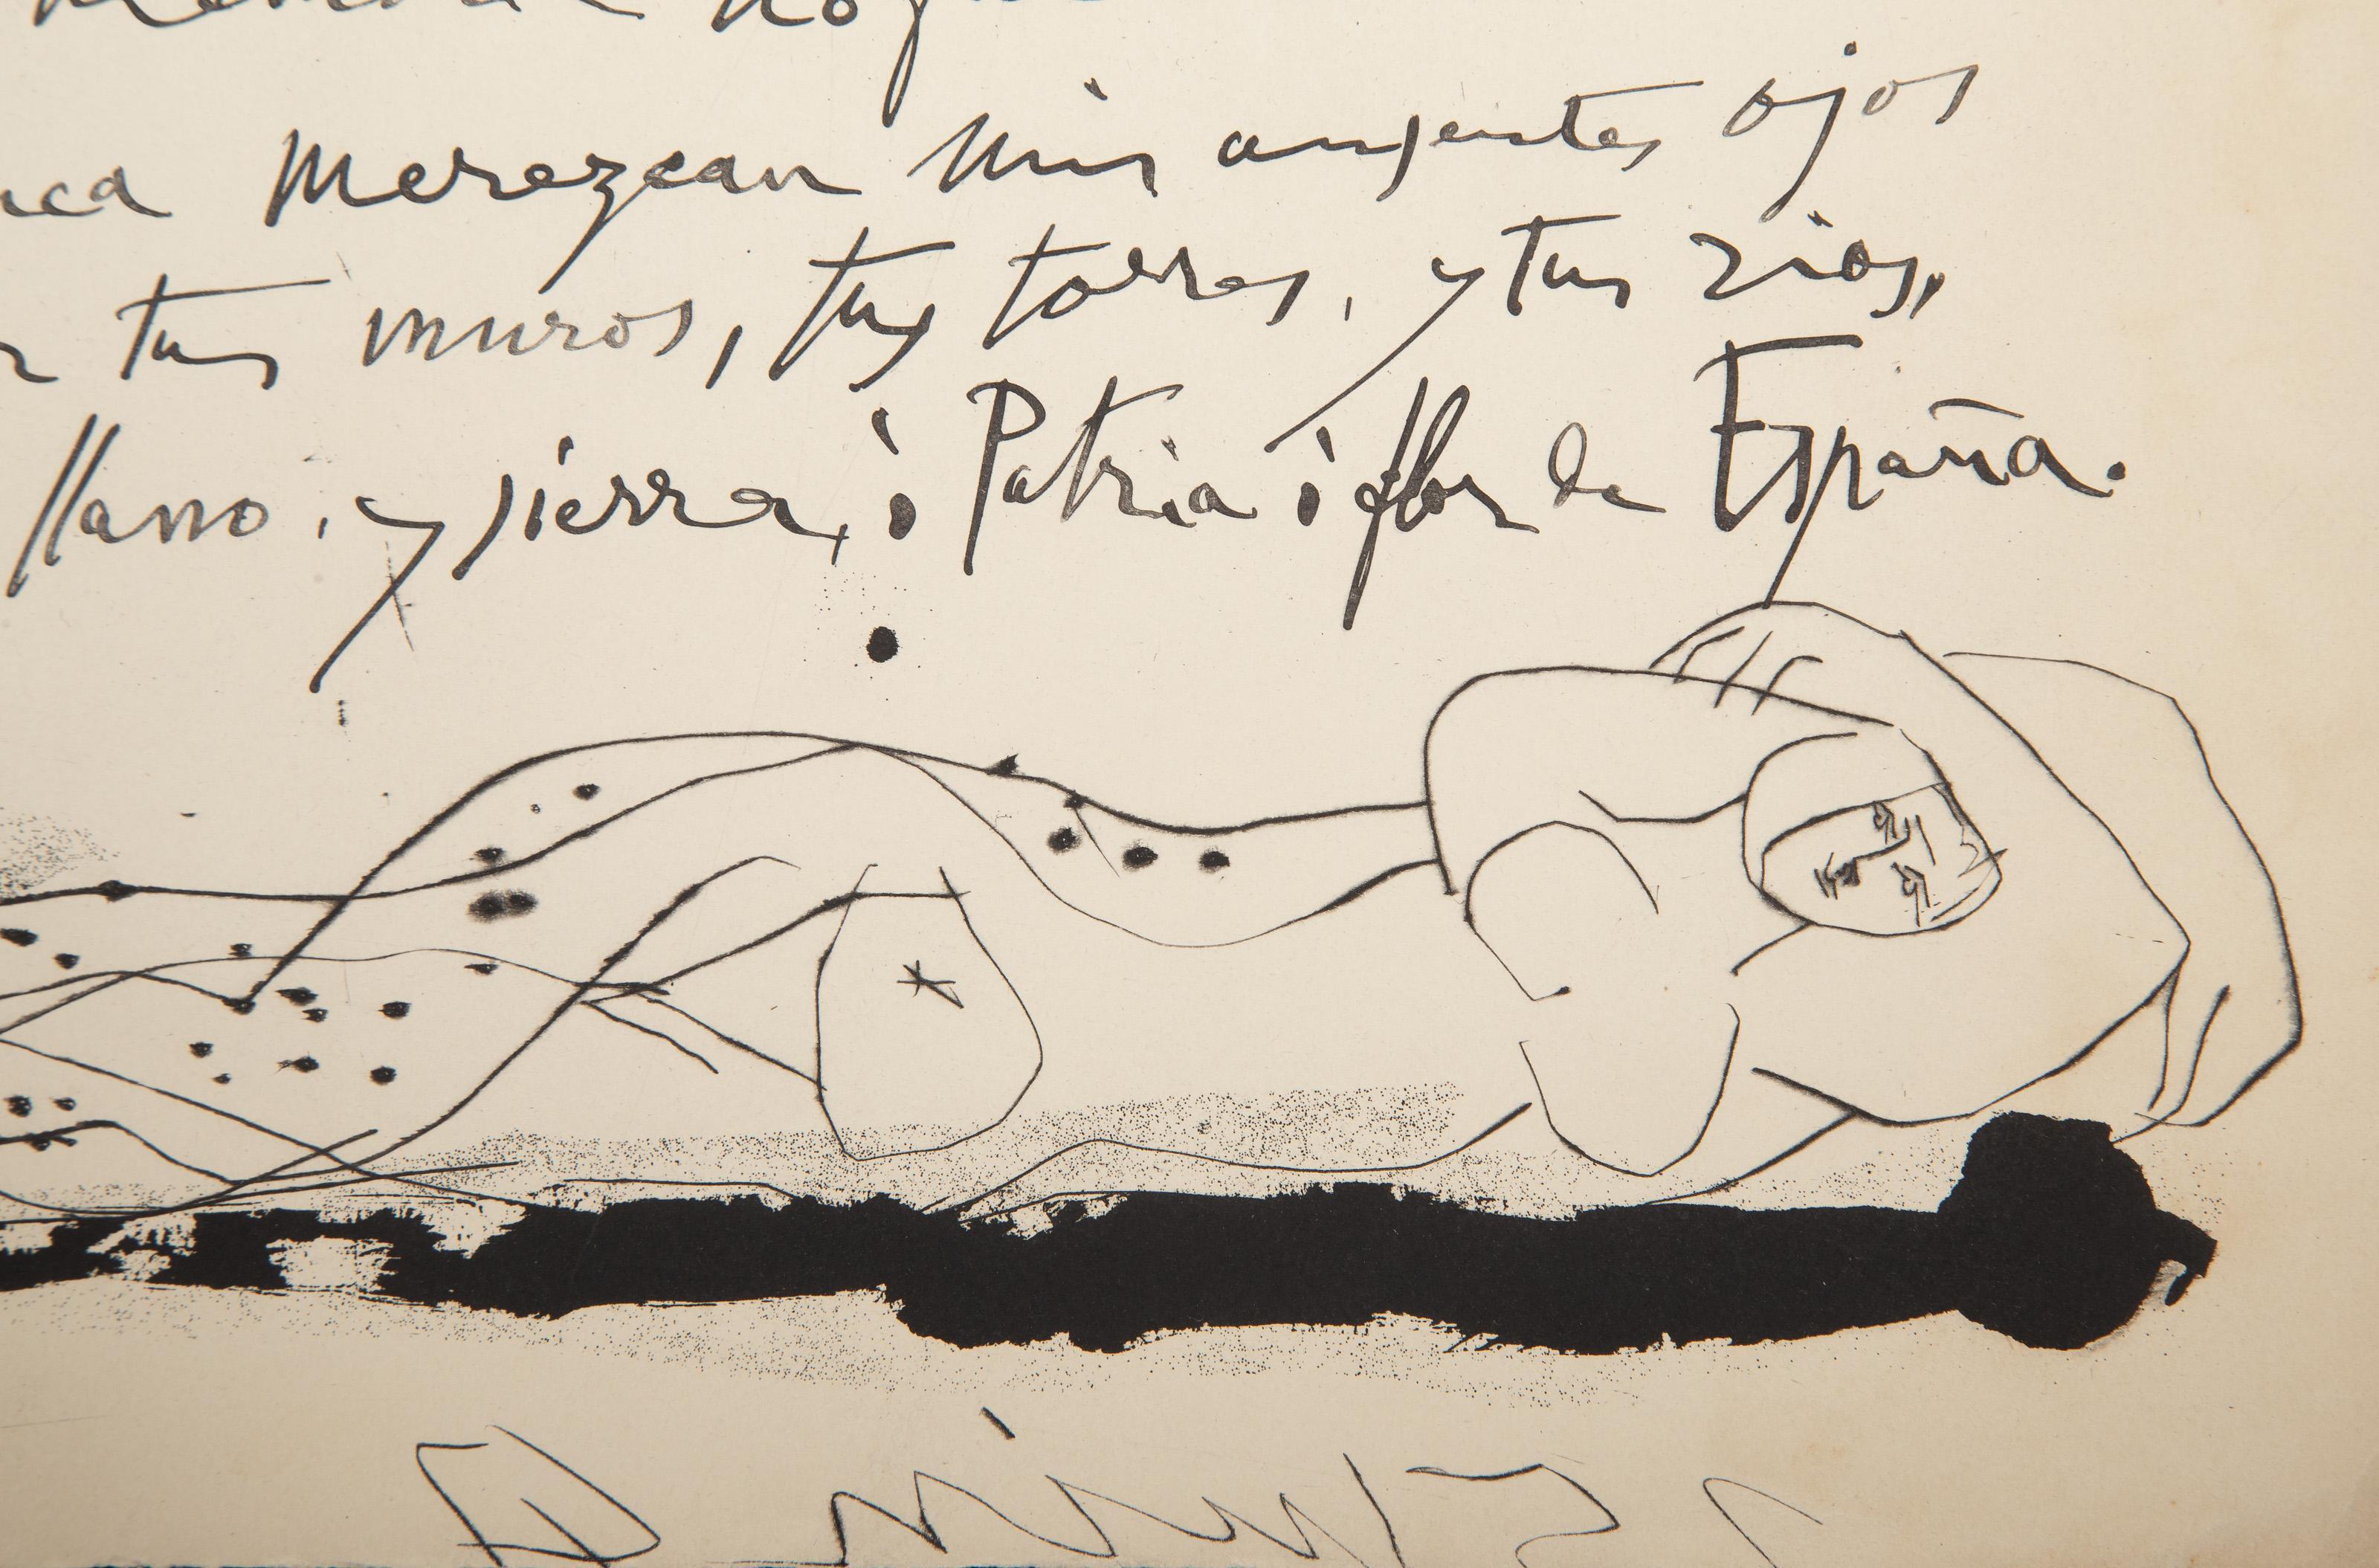 merezcan mis ausentes ojos
tus muros, tus torres, y tus rios,
llano, y sierra, ¡ Patria ¡ flor de España.